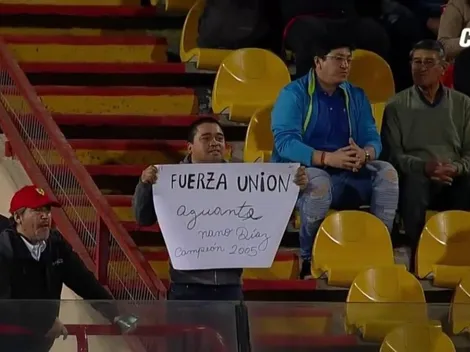 FUERZA UNION
aguanta
nano Díaz
Campeón 2005